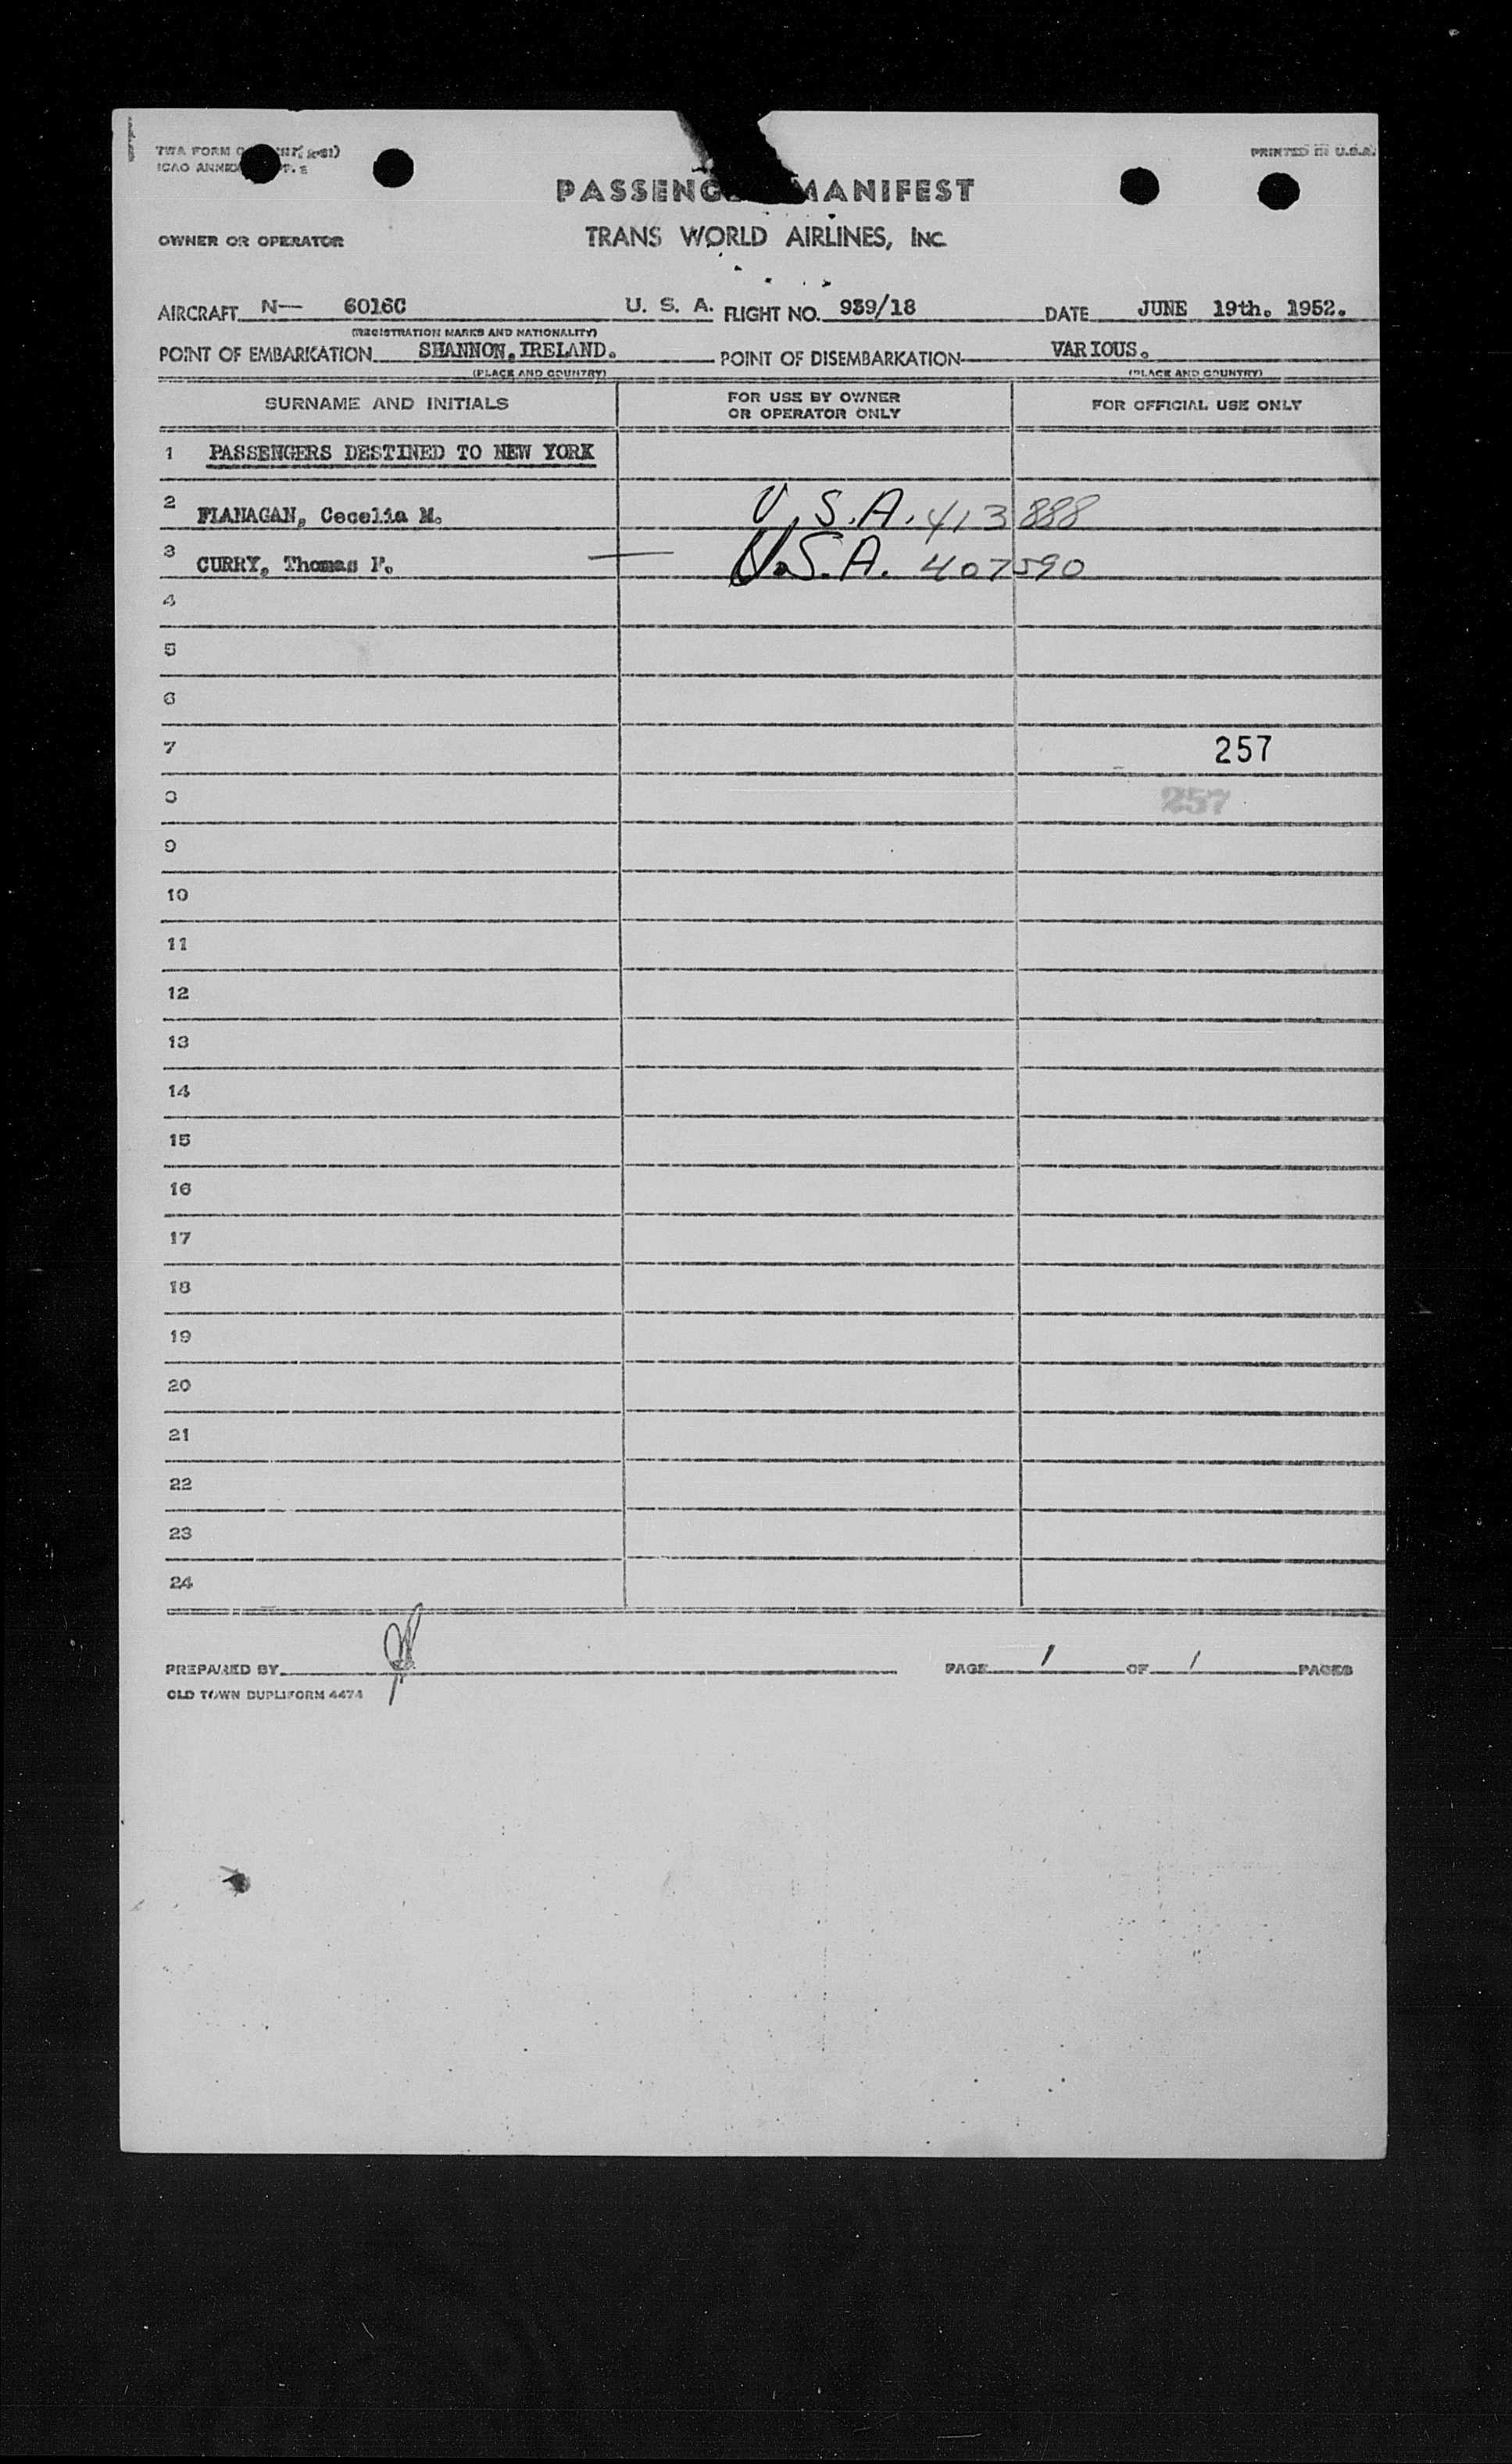 TWA FORM
ICAO ANNEX
PRINTED IN U.S.A.
PASSENG MANIFEST
OWNER OR OPERATOR
TRANS WORLD AIRLINES, INC.
AIRCRAFT N— 6016C U. S. A. FLIGHT NO. 939/18 DATE JUNE 19th. 1952.
(REGISTRATION MARKS AND NATIONALITY)
POINT OF EMBARKATION SHANNON, IRELAND. POINT OF DISEMBARKATION VARIOUS.
(PLACE AND COUNTRY) (PLACE AND COUNTRY)
SURNAME AND INITIALS FOR USE BY OWNER OR OPERATOR ONLY FOR OFFICIAL USE ONLY
1 PASSENGERS DESTINED TO NEW YORK
2 FLANAGAN, Cecelia M. U.S.A. 413888
3 CURRY, Thomas F. U.S.A. 407590
4
5
6
7 257
8 257
9
10
11
12
13
14
15
16
17
18
19
20
21
22
23
24
PREPARED BY PAGE 1 OF 1 PAGES
OLD TOWN DUPLIFORM 4474